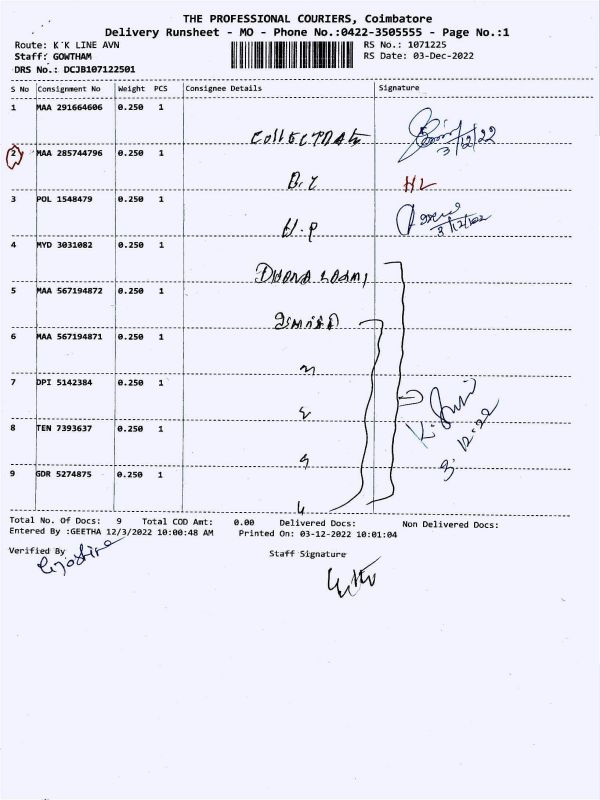 THE PROFESSIONAL COURIERS, Coimbatore
Delivery Runsheet - MO - Phone No.:0422-3505555 - Page No.:1
Route: K K LINE AVN
RS No.: 1071225
Staff: GOWTHAM
RS Date: 03-Dec-2022
DRS No.: DCJB107122501
S No Consignment No Weight PCS Consignee Details Signature
1 MAA 291664606 0.250 1
3/12/22
2 MAA 285744796 0.250 1
HL
3 POL 1548479 0.250 1
H.P
4 MYD 3031082 0.250 1
5 MAA 567194872 0.250 1
6 MAA 567194871 0.250 1
7 DPI 5142384 0.250 1
8 TEN 7393637 0.250 1
9 GDR 5274875 0.250 1
Total No. Of Docs: 9 Total COD Amt: 0.00 Delivered Docs: Non Delivered Docs:
Entered By :GEETHA 12/3/2022 10:00:48 AM Printed On: 03-12-2022 10:01:04
Verified By
Staff Signature